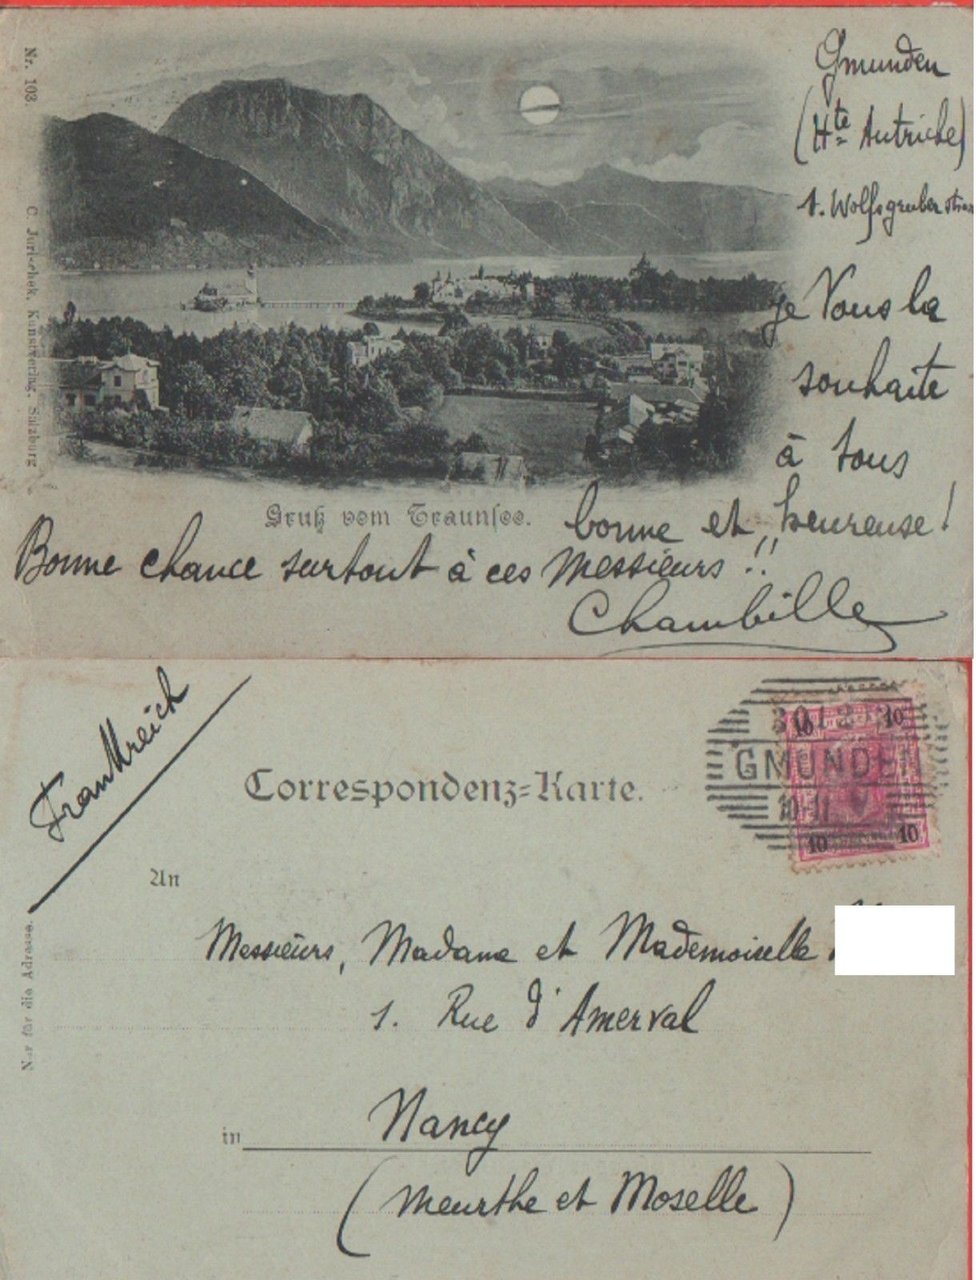 Nr. 103
C. Jurischek, Kunstverlag, Salzburg
Gmunden
(Hte Autriche)
1. Wolfsgruber stras
Gruß vom Traunsee.
je Vous la
souhaite
à tous
bonne et heureuse!
Bonne chance surtout à ces Messieurs!!
Chambille
Frankreich
Correspondenz-Karte.
10 10
GMUNDEN
10-11 V
10 10
An
Messieurs, Madame et Mademoiselle
1. Rue d'Amerval
Nur für die Adresse.
in Nancy
(Meurthe et Moselle)